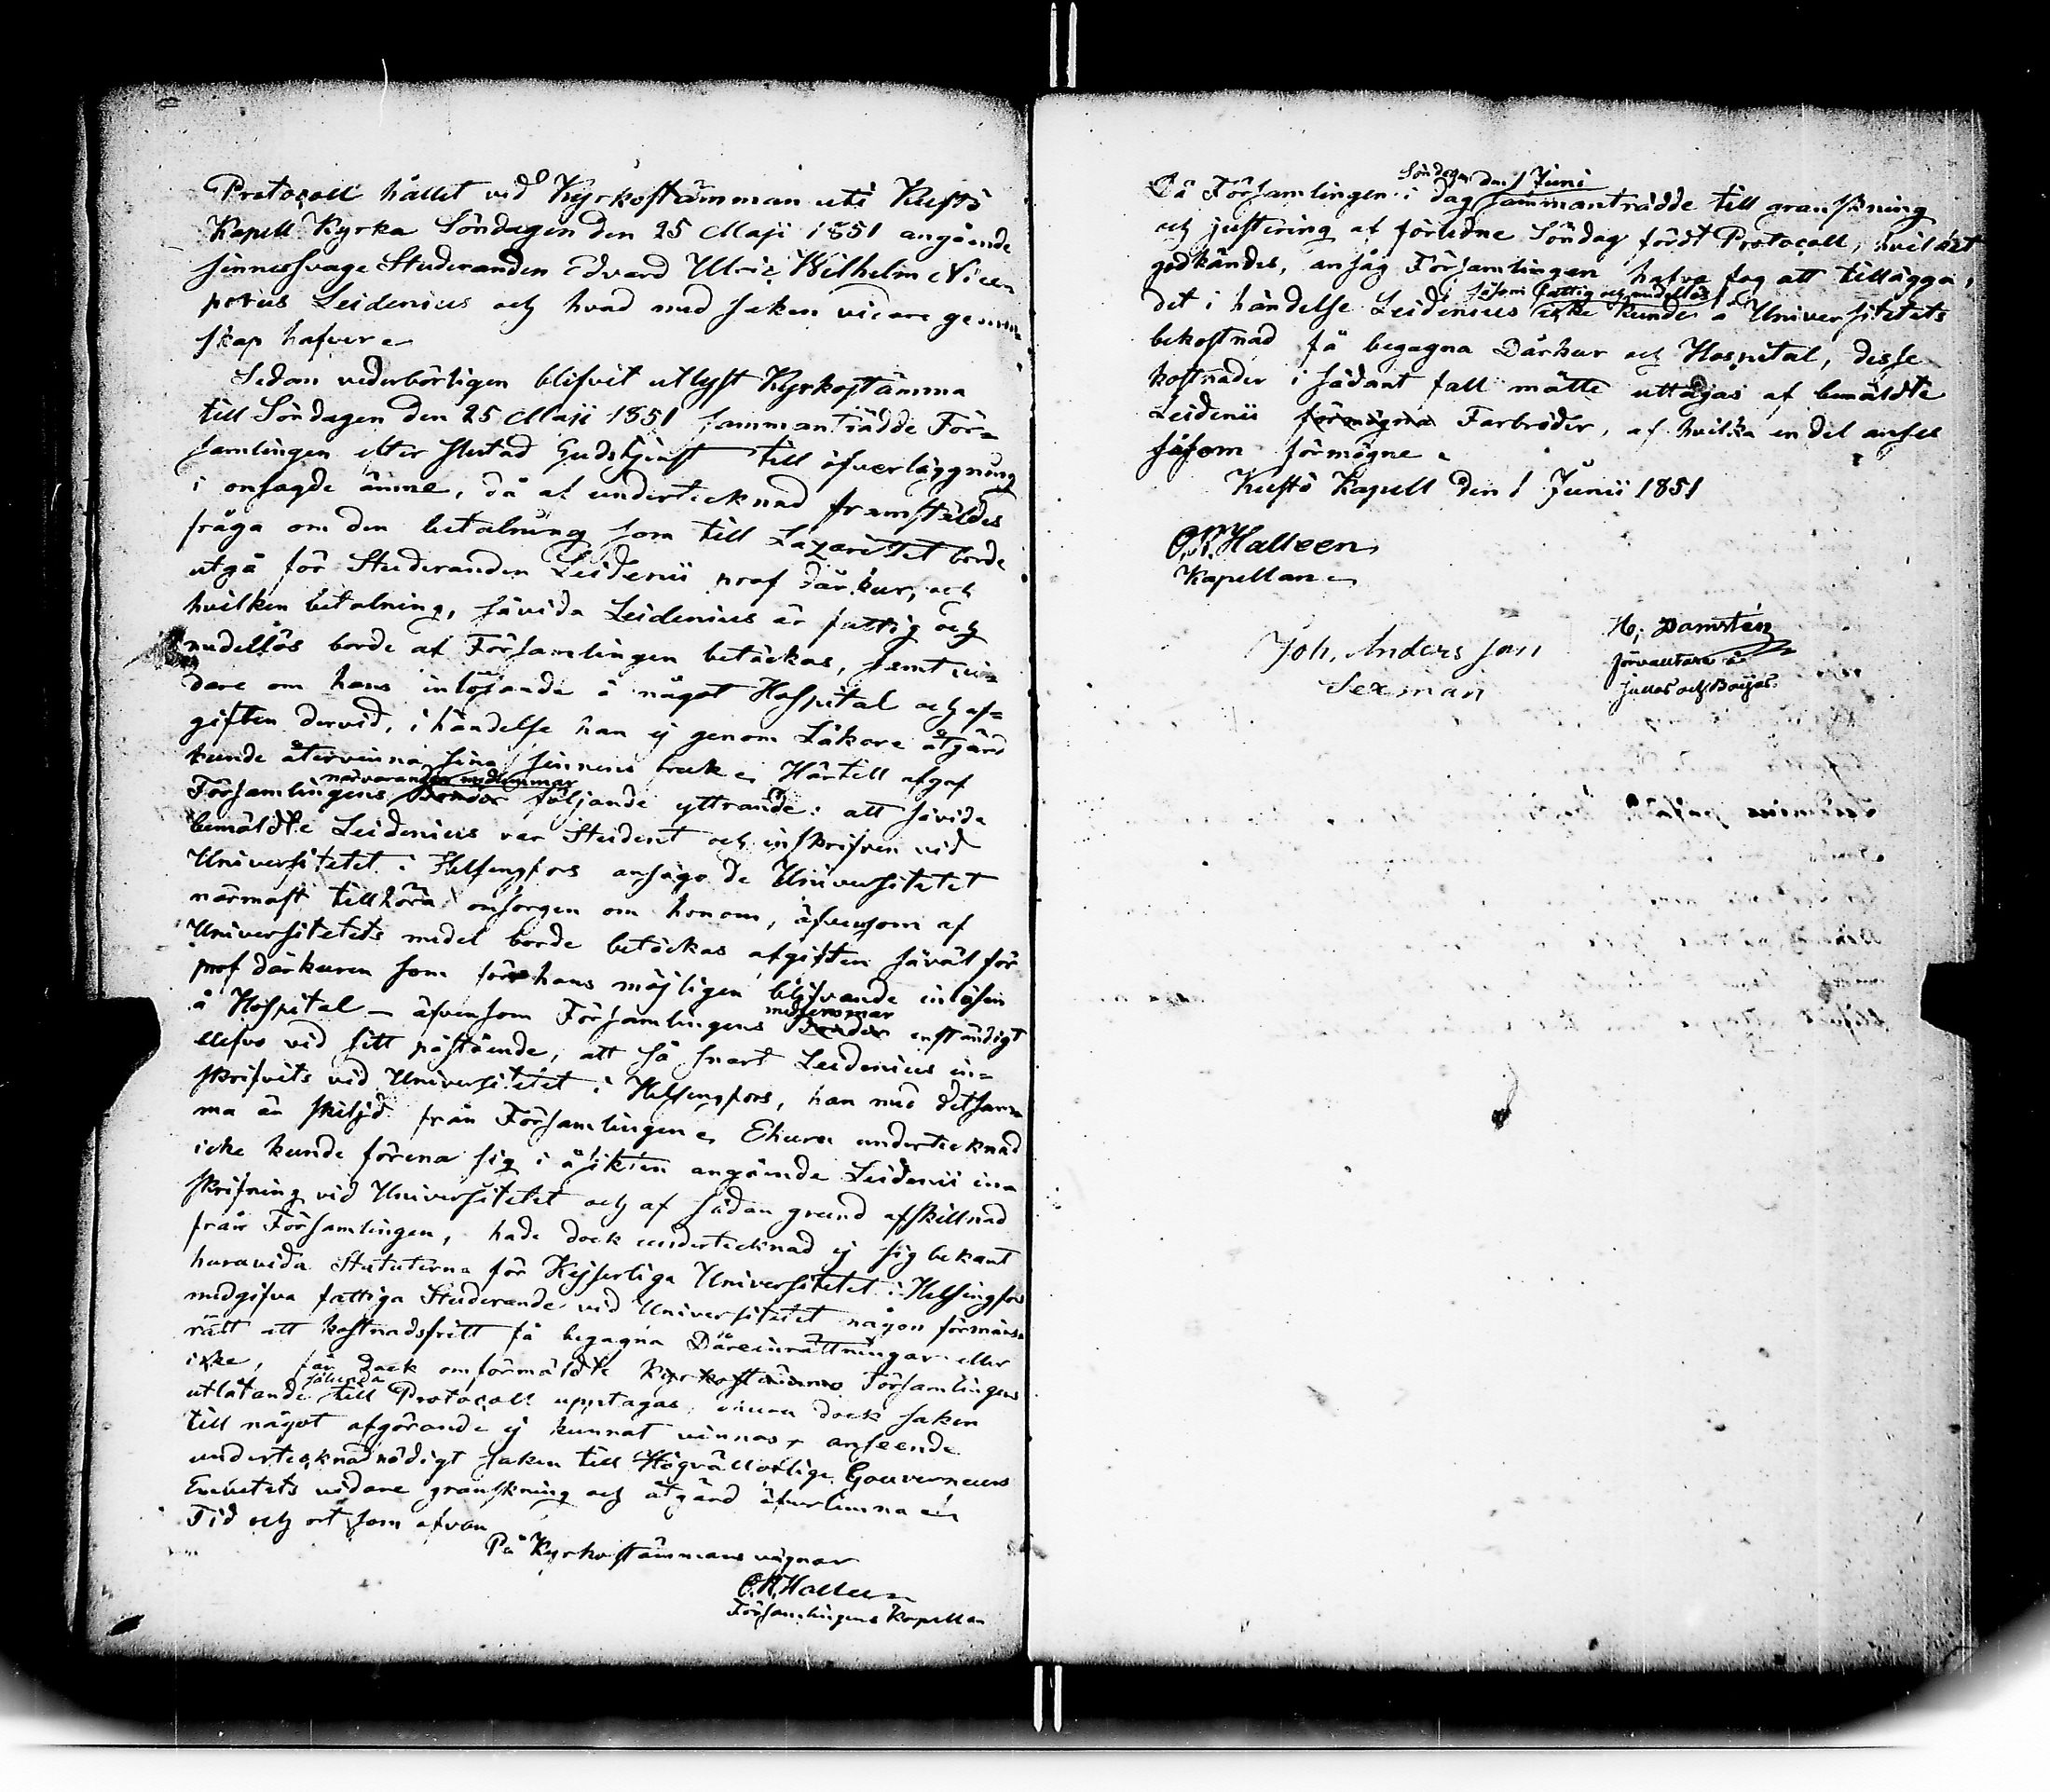 Protocoll hållet vid Kyrkostämman uti Kustö
Kapell Kyrka Söndagen den 25 Maji 1851 angående
sinnessvage Studeranden Edvard Ulric Wilhelm Nicen
porus Leidenius och hvad med saken vidare gemen¬
skap hafver
Sedan vederbörligen blifvit utlyst Kyrkostämma
till Söndagen den 25 Maji 1851 sammanträdde För¬
samlingen efter slutad Gudstjenst till öfverläggning
i ofsagde ämne, då af undertecknad framstäldes
fråga om den betalning som till Lazarettet borde
utgå för Studeranden Leidenii prof dårkur, och
hvilken betalning, såvida Leidenius är fattig och
medellös borde af Församlingen betäckas, samt vi¬
dare om hans inlösande å något Hospital och af¬
giften dervid, i händelse han ej genom Läkare åtgärd
kunde återvinna sina sinnens bruk. Härtill afgaf
närvarande medlemmar
Församlingens följande yttrande: att såvida
bemäldte Leidenius var Student och inskrifven vid
Universitetet i Helsingfors ansågo de Universitetet
närmast tillhöra omsorgen om honom, äfvensom af
Universitetets medel borde betäckas afgiften såväl för
prof dårkuren som för hans möjligen blifvande inlösen
å Hospital – äfvensom Församlingens
medlemmar
enständigt
blefvo vid sitt påstående, att så snart Leidenius in¬
skrifvits vid Universitetet i Helsingfors, han med detsam¬
ma är skiljd från Församlingen. Ehuru undertecknad
icke kunde förena sig i åsikten angående Leidenii in¬
skrifning vid Universitetet och af sådan grund afskillnad
från Församlingen, hade dock undertecknad ej sig bekant
huruvida Statuterna för Kejserliga Universitetet i Helsingfors
medgifva fattiga Studerande vid Universitetet någon förmåns¬
rätt att kostnadsfritt få begagna Dåreinrättningar eller
icke, får dock omförmäldte Kyrkostämmo Församlingens
sålunda
utlåtande till Protocoll upptagas, ehuru dock saken
till något afgörande ej kunnat vinnas, anseende
undertecknad nödigt saken till Högvällovlige Gouverneurs
Embetets vidare granskning och åtgärd öfverlemna
Tid och ort som ofvan
På Kyrkostämmans vägnar
O.R. Halleen
Församlingens Kapellan
Söndagen den 1 Juni
Då Församlingen i dag sammanträdde till granskning
och justering af förledne Söndag fördt Protocoll, hvilket
godkändes, ansåg Församlingen hafva sag att tillägga,
såsom fattig och medellös
det i händelse Leidenius icke kunde å Universitetets
bekostnad få begagna Dårkur och Hospital, desse
kostnader i sådant fall måtte uttagas af bemäldte
Leidenii förmögna Farbröder, af hvilka en del anses
såsom förmögne
Kustö Kapell den 1 Junii 1851
O.R. Halleen
Kapellan
Joh. Andersson
Sexman
H. Damstén
förvaltare å